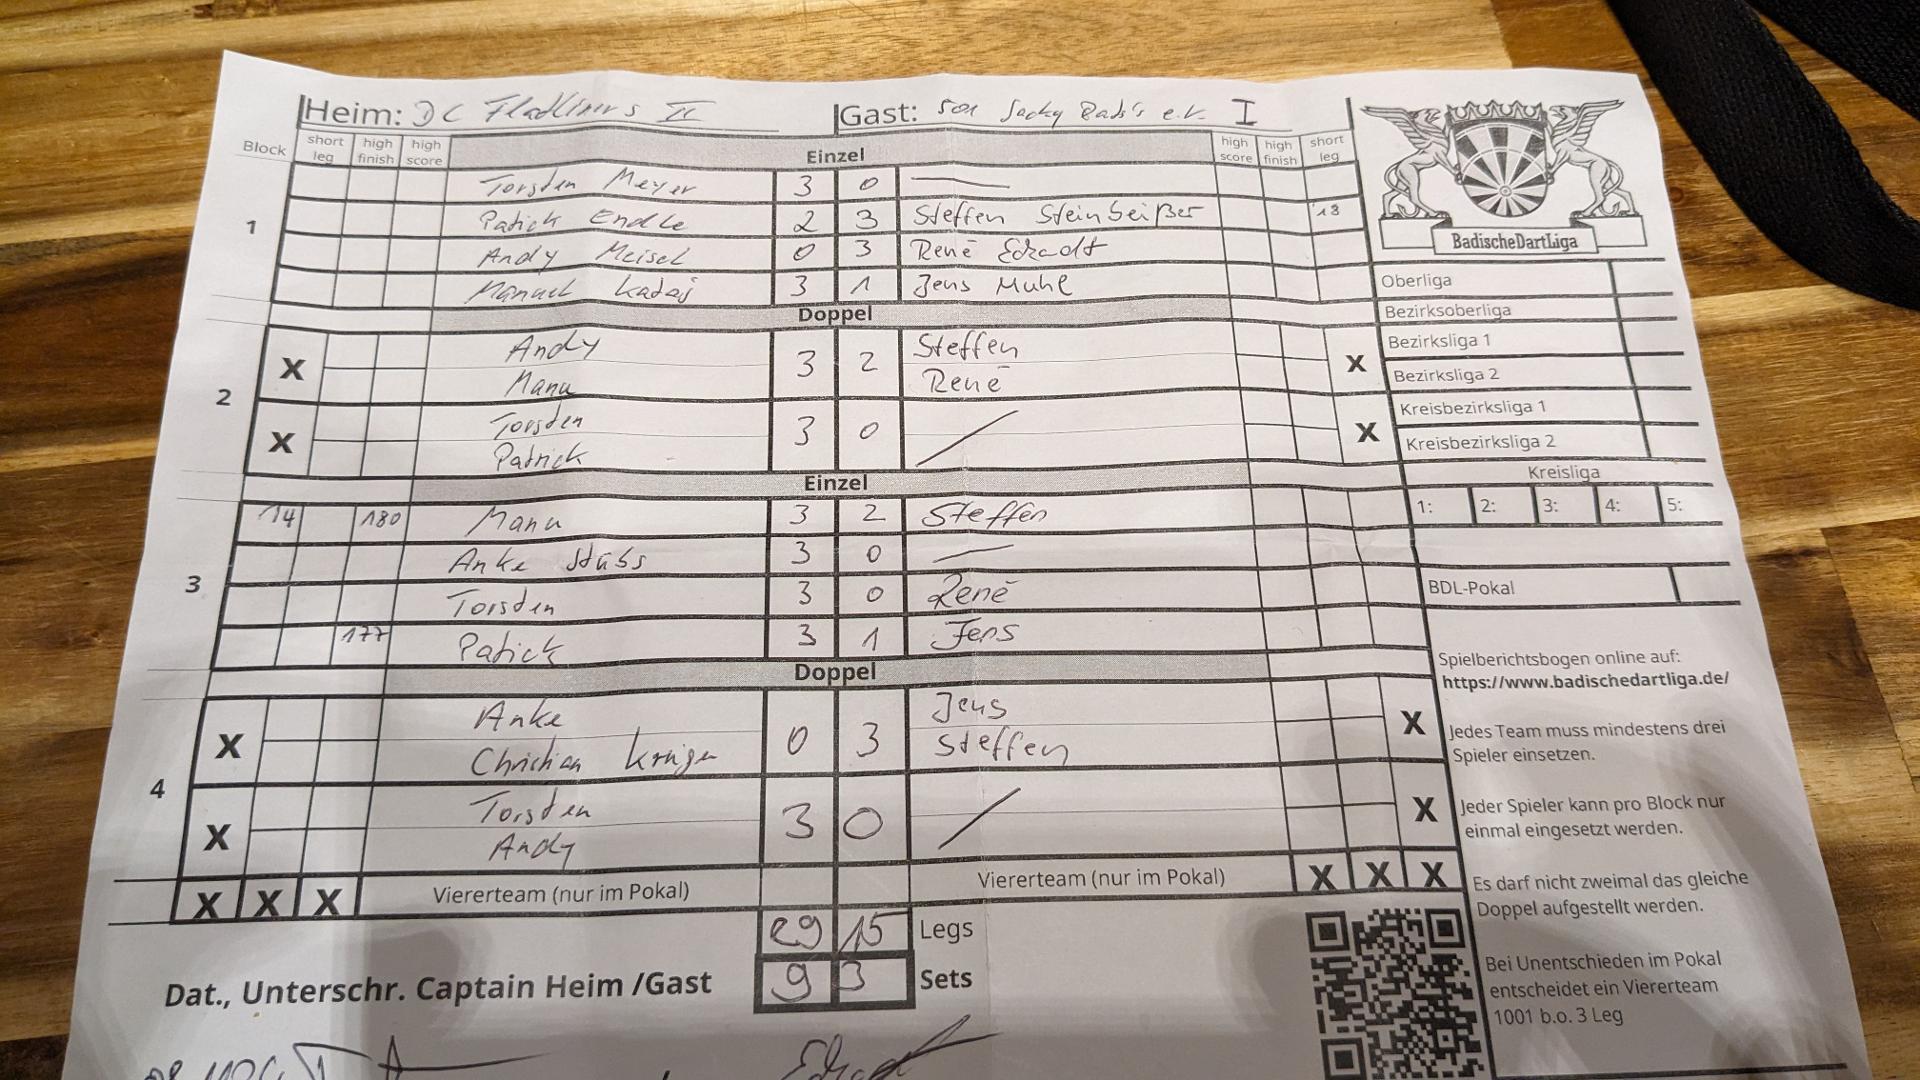 Heim: DC Fladliners II Gast: 501 Sacky Bads's e.V. I
Block short leg high finish high score Einzel high score high finish short leg
Torsten Meyer 3 0 —
1 Patick Endle 2 3 Steffen Steinbeißer 18
Andy Meisel 0 3 René Eckadt
Manuel Kadaj 3 1 Jens Muhl
Doppel
Andy Steffen
X 3 2 X
Manu René
2
Torsten
X 3 0 X
Patrick
Einzel
14 180 Manu 3 2 Steffen
Anke Stübs 3 0 —
3 Torsten 3 0 René
177 Patick 3 1 Jens
Doppel
Anke Jens
X 0 3 X
Christian Krüger Steffen
4
Torsten
X 3 0 X
Andy
X X X Viererteam (nur im Pokal) Viererteam (nur im Pokal) X X X
29 15 Legs
9 3 Sets
Dat., Unterschr. Captain Heim /Gast
BadischeDartLiga
Oberliga
Bezirksoberliga
Bezirksliga 1
Bezirksliga 2
Kreisbezirksliga 1
Kreisbezirksliga 2
Kreisliga
1: 2: 3: 4: 5:
BDL-Pokal
Spielberichtsbogen online auf:
https://www.badischedartliga.de/
Jedes Team muss mindestens drei
Spieler einsetzen.
Jeder Spieler kann pro Block nur
einmal eingesetzt werden.
Es darf nicht zweimal das gleiche
Doppel aufgestellt werden.
Bei Unentschieden im Pokal
entscheidet ein Viererteam
1001 b.o. 3 Leg